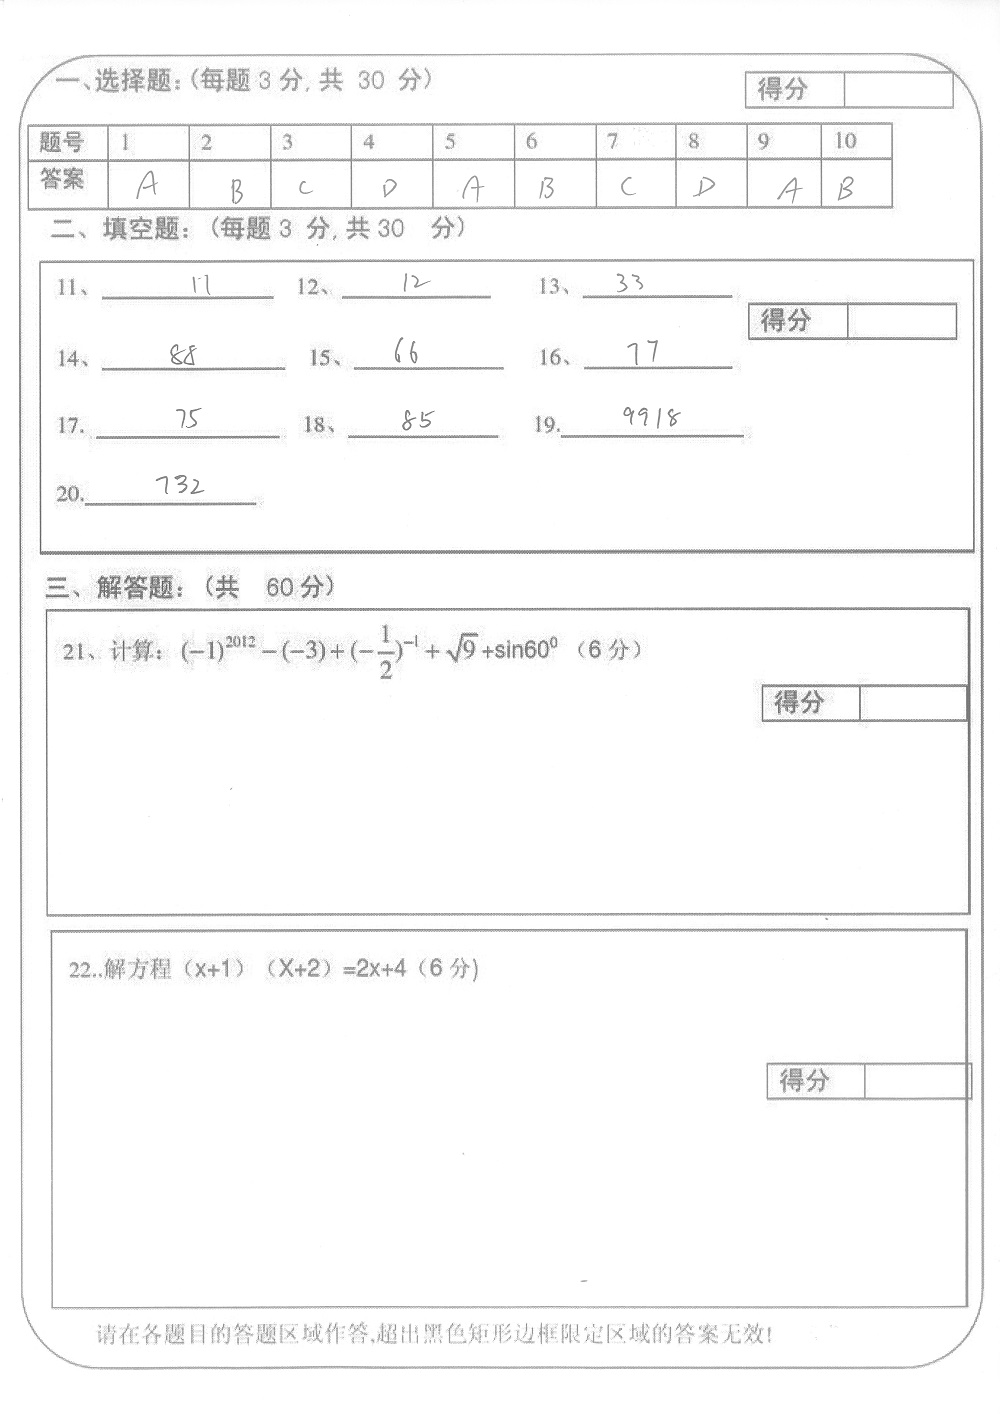 一、选择题：（每题 3 分, 共 30 分）
得分
题号 1 2 3 4 5 6 7 8 9 10
答案 A B C D A B C D A B
二、填空题：（每题 3 分, 共 30 分）
11、 11 12、 12 13、 33
得分
14、 88 15、 66 16、 77
17. 75 18、 85 19. 9918
20. 732
三、解答题：（共 60 分）
21、计算：(−1)^2012 −(−3)+(−1/2)^−1 + √9 +sin60⁰ （6 分）
得分
22..解方程（x+1）（X+2）=2x+4（6 分)
得分
请在各题目的答题区域作答,超出黑色矩形边框限定区域的答案无效!